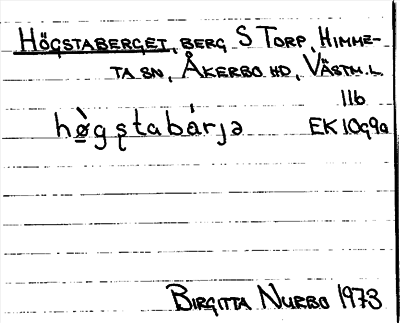 HÖGSTABERGET, BERG S TORP, HIMME-
TA SN, ÅKERBO HD, VÄSTM. L.
11b
hø̀gstabárjə EK 10g9a
BIRGITTA NURBO 1973